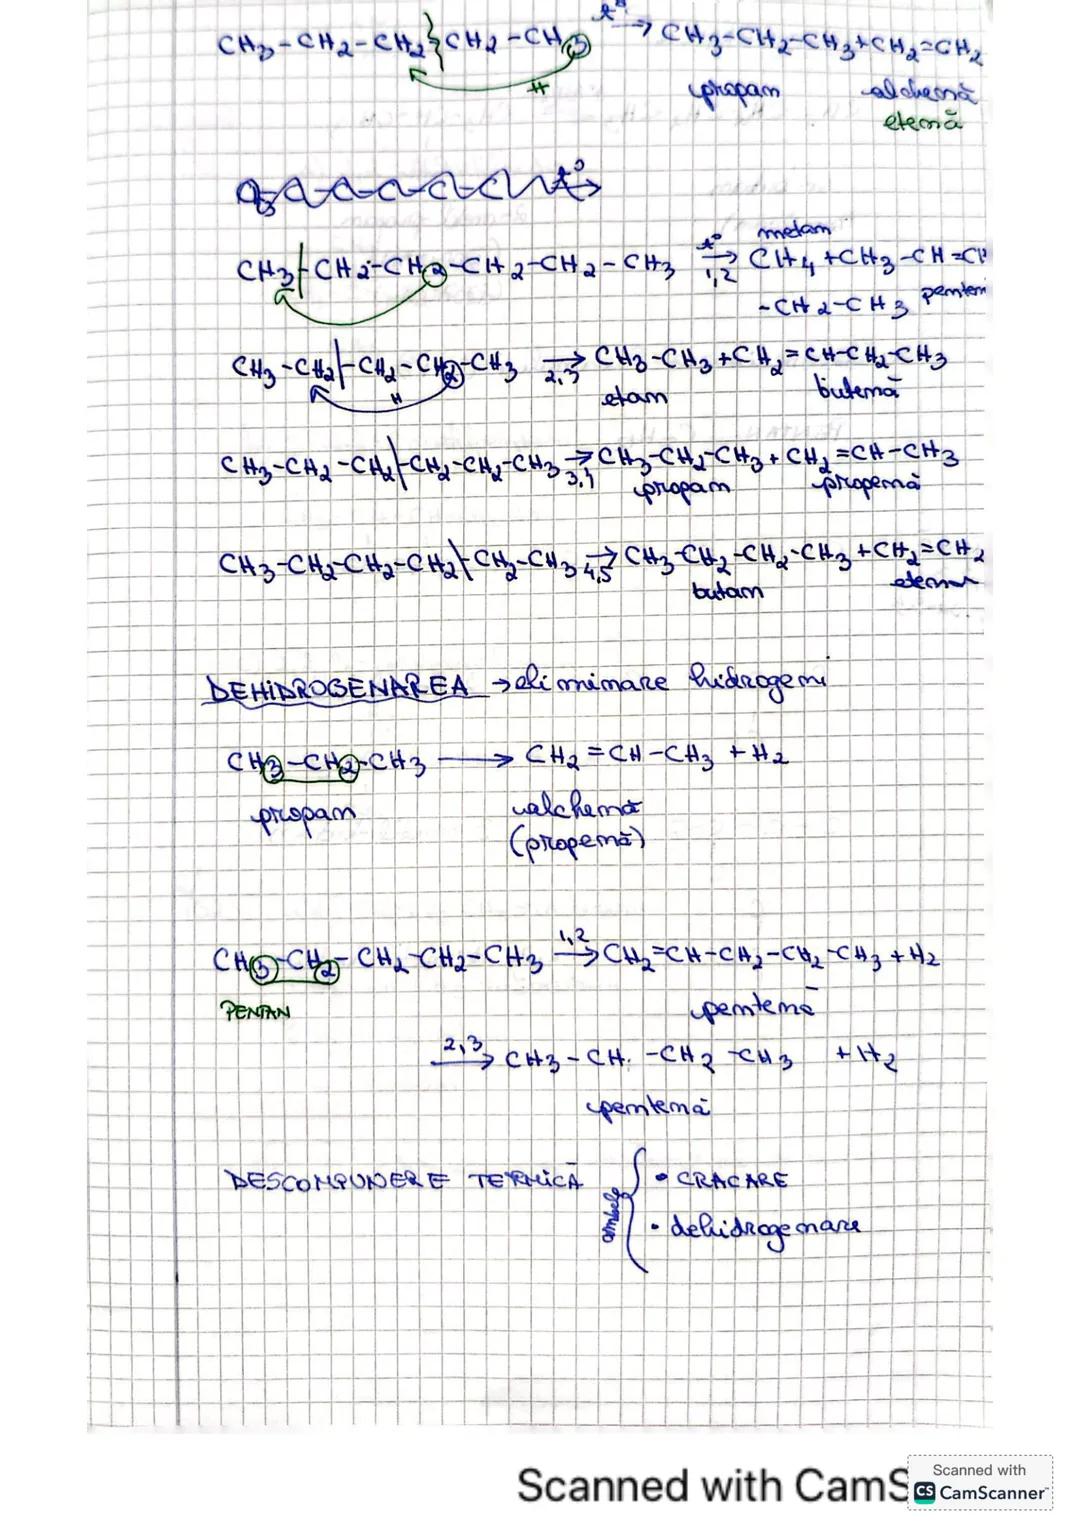 CH3-CH2-CH2 CH2-CH3 t° → CH3-CH2-CH3+CH2=CH2
H
propan alchenă
etenă
t° →
metan
CH3 CH2-CH2-CH2-CH2-CH3 t° → 1,2 CH4+CH3-CH=CH
-CH2-CH3 penten
CH3-CH2 CH2-CH2-CH3 → 2,3 CH3-CH3+CH2=CH-CH2-CH3
H etan butenă
CH3-CH2-CH2 CH2-CH2-CH3 → 3,4 CH3-CH2-CH3+CH2=CH-CH3
propan propenă
CH3-CH2-CH2-CH2 CH2-CH3 → 4,5 CH3-CH2-CH2-CH3+CH2=CH2
butan
DEHIDROGENAREA → eliminare hidrogeni
CH3-CH2-CH3 → CH2=CH-CH3+H2
propan alchenă
(propenă)
CH3-CH2-CH2-CH2-CH3 1,2 → CH2=CH-CH2-CH2-CH3+H2
PENTAN pentenă
2,3 → CH3-CH-CH2-CH3 +H2
pentenă
DESCOMPUNERE TERMICĂ ambele { • CRACARE
• dehidrogenare
Scanned with CamS
Scanned with
CS CamScanner